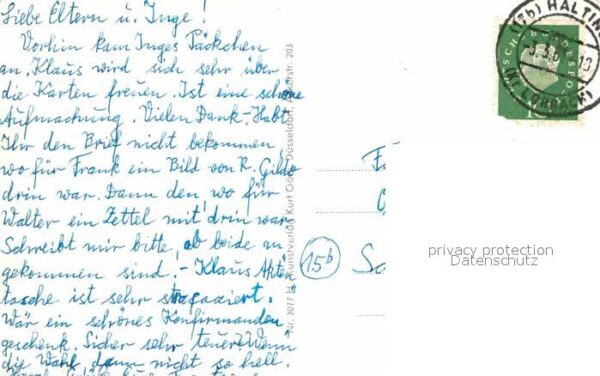 Liebe Eltern u. Inge!
Vorhin kam Inges Päckchen
an. Klaus wird sich sehr über
die Karten freuen. Ist eine schöne
Aufmachung. Vielen Dank. Habt
Ihr den Brief nicht bekommen
wo für Frank ein Bild von R. Gildo
drin war. Dann den, wo für
Walter ein Zettel mit drin war
Schreibt mir bitte, ob beide an
gekommen sind. - Klaus Akten
tasche ist sehr strapaziert.
Wär ein schönes Konfirmanden
geschenk. Sicher sehr teuer? Wenn
die Wahl dann nicht so hell.
Nr. 3077 Kunstverlag Kurt Düsseldorf, 203
(17b) HALTING
DEUTSCHE BUNDESPOST
15b
privacy protection
Datenschutz